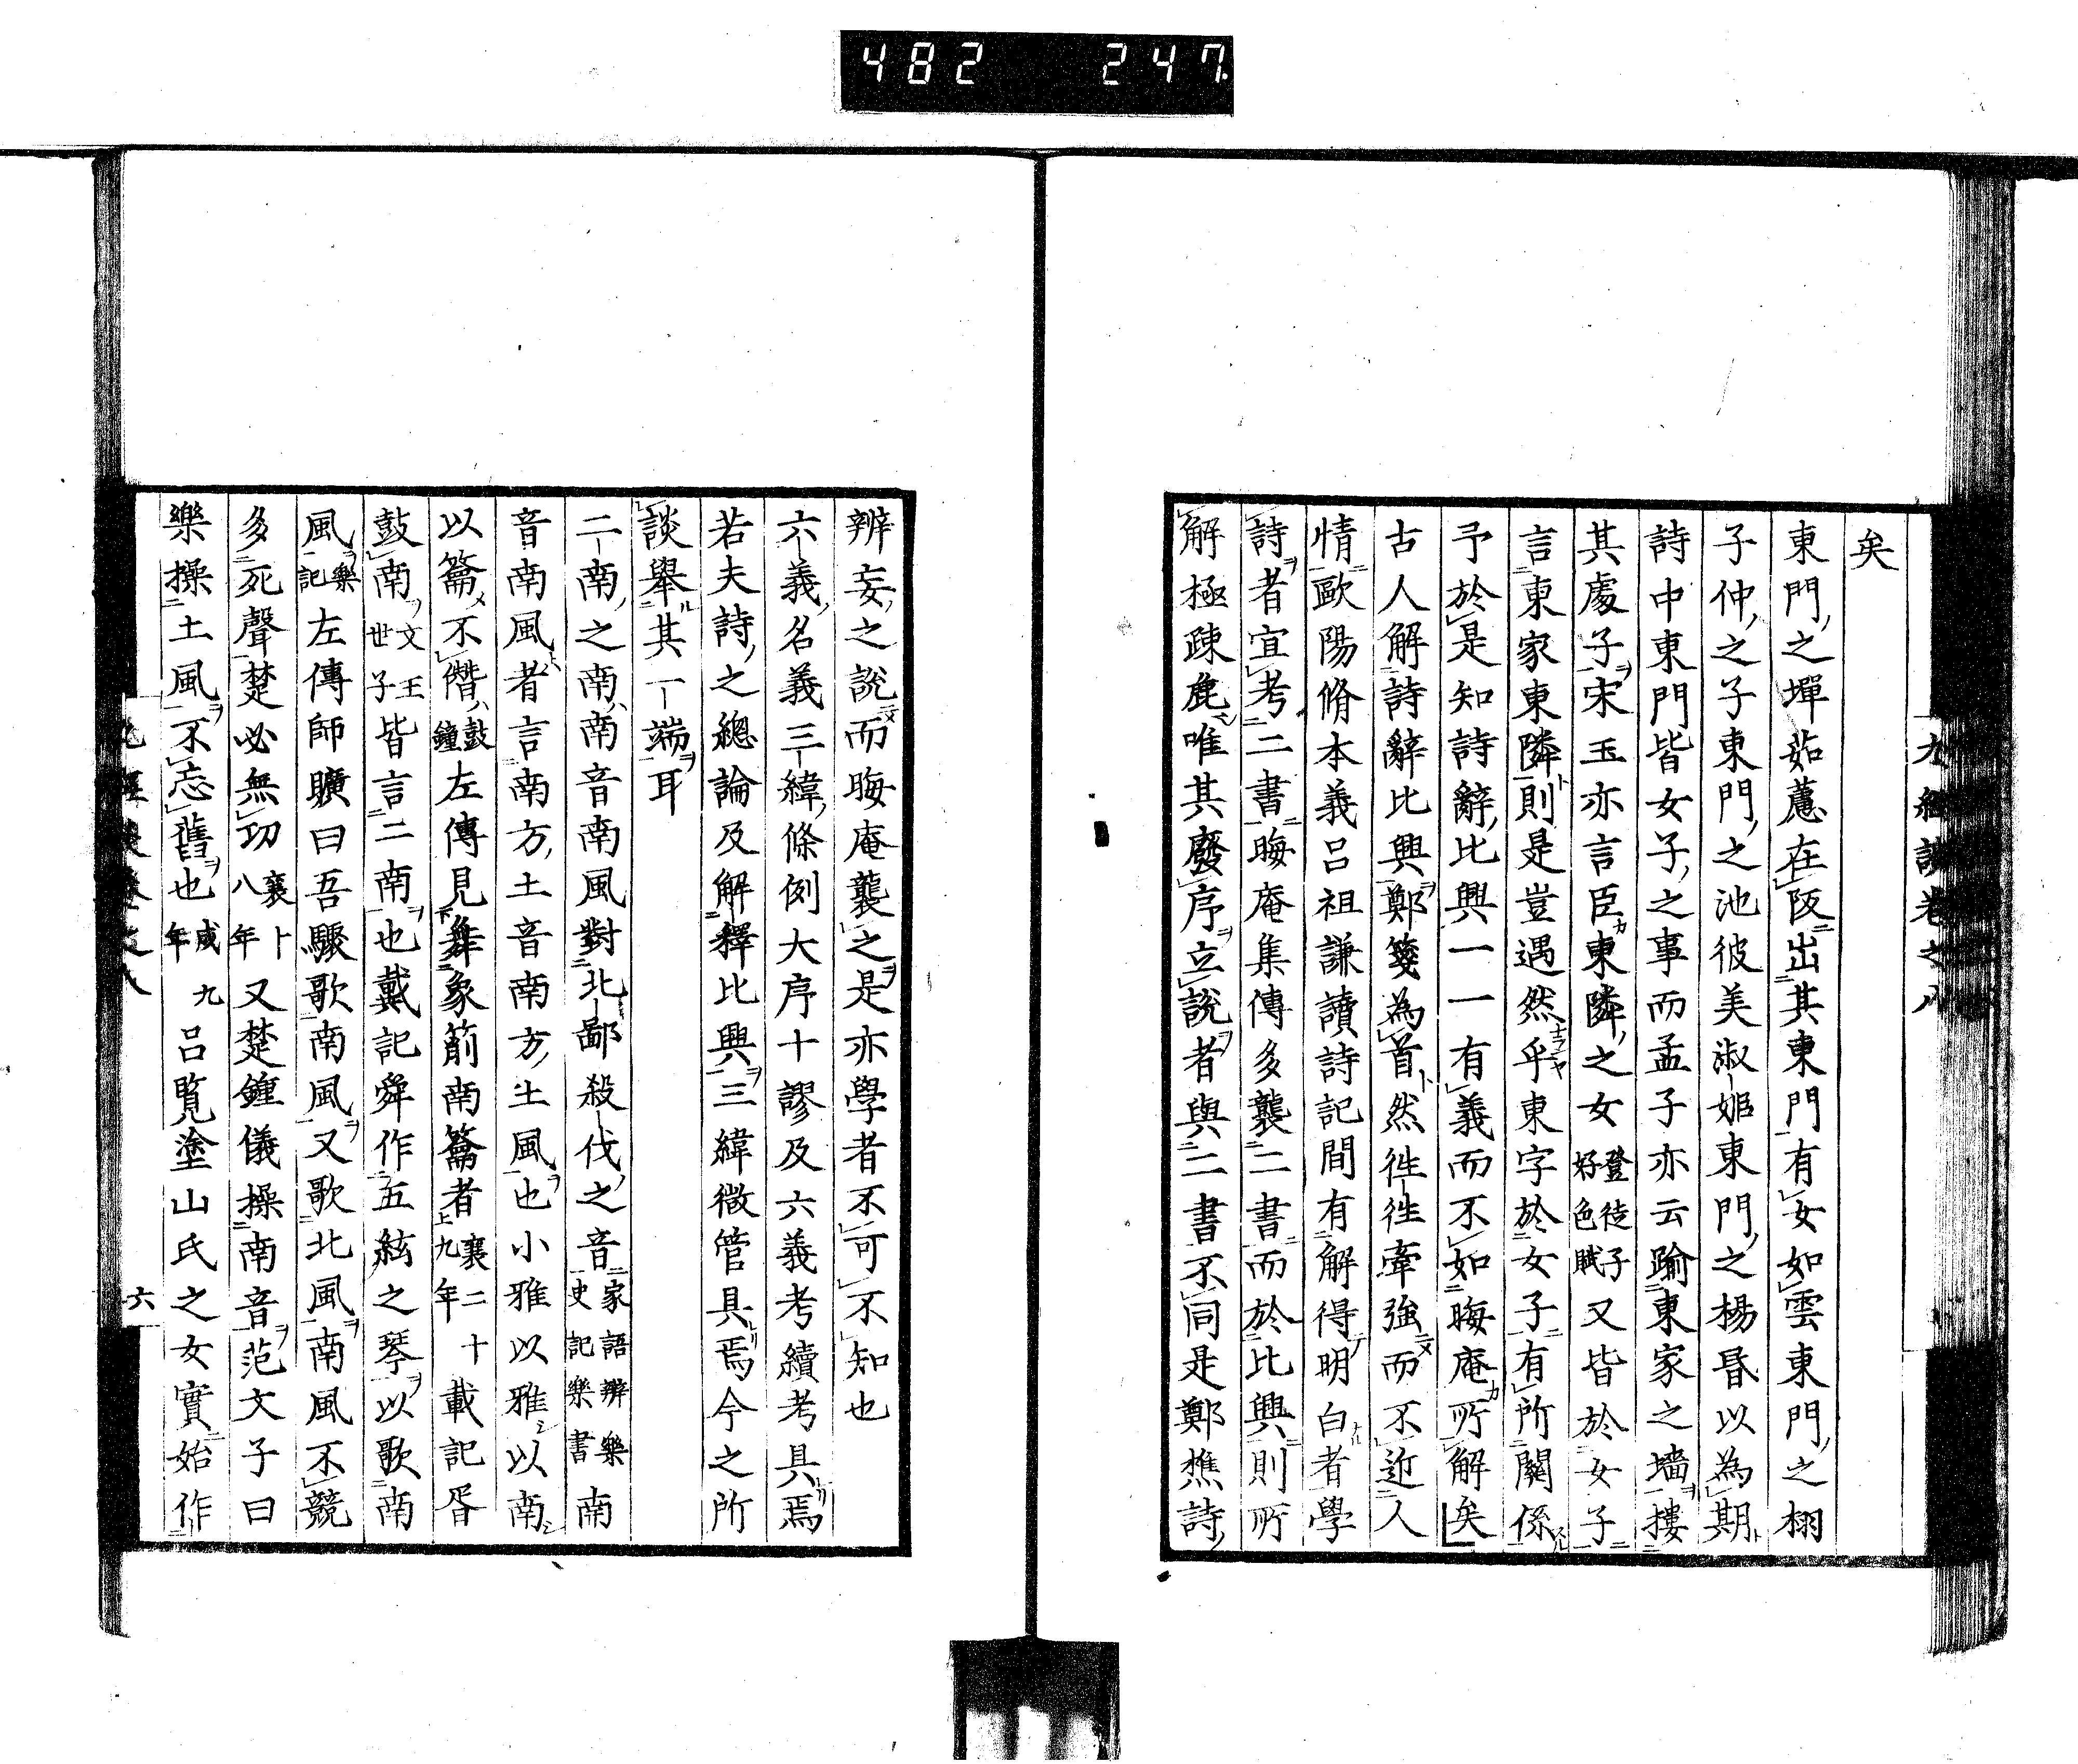 482 247
九經談卷之八
矣
東門之墠茹藘在阪出其東門有女如雲東門之栩
子仲之子東門之池彼美淑姬東門之楊昏以為期
詩中東門皆女子之事而孟子亦云踰東家之墻摟
其處子宋玉亦言臣東隣之女登徒子好色賦又皆於女子
言東家東隣則是豈遇然乎東字於女子有所關係
予於是知詩辭比興一一有義而不如晦庵所解矣
古人解詩辭比興鄭箋為首然徃徃牽強而不近人
情歐陽脩本義呂祖謙讀詩記間有解得明白者學
詩者宜考二書晦庵集傳多襲二書而於比興則所
解極疎麁唯其廢序立說者與二書不同是鄭樵詩
辨妄之說而晦庵襲之是亦學者不可不知也
六義名義三緯條例大序十謬及六義考續考具焉
若夫詩之總論及解釋比興三緯微管具焉今之所
談舉其一端耳
二南之南南音南風對北鄙殺伐之音家語辨樂史記樂書南
音南風者言南方土音南方土風也小雅以雅以南
以籥不僭鼓鐘左傳見舞象箾南籥者襄二十九年載記胥
鼓南文王世子皆言二南也戴記舜作五絃之琴以歌南
風樂記左傳師曠曰吾驟歌南風又歌北風南風不競
多死聲楚必無功襄十八年又楚鐘儀操南音范文子曰
樂操土風不忘舊也成九年呂覧塗山氏之女實始作
六